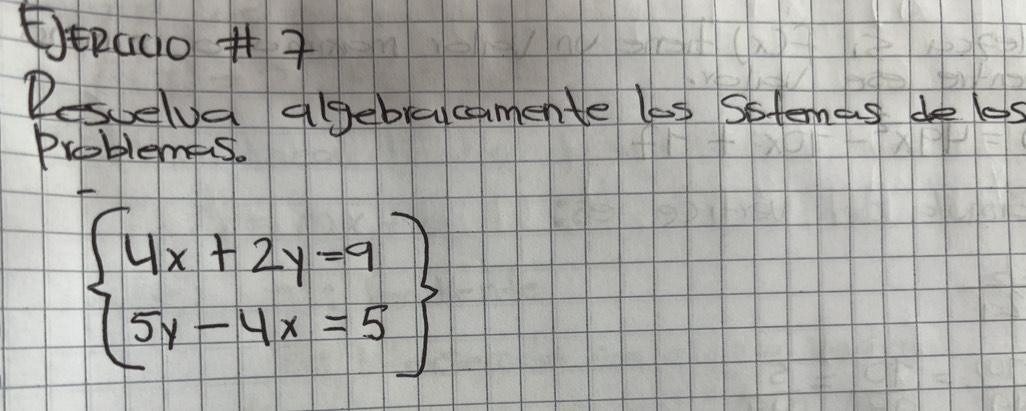 EJERCICIO # 7
Resuelva algebraicamente los Sistemas de los
Problemas.
4x + 2y = 9
5y - 4x = 5